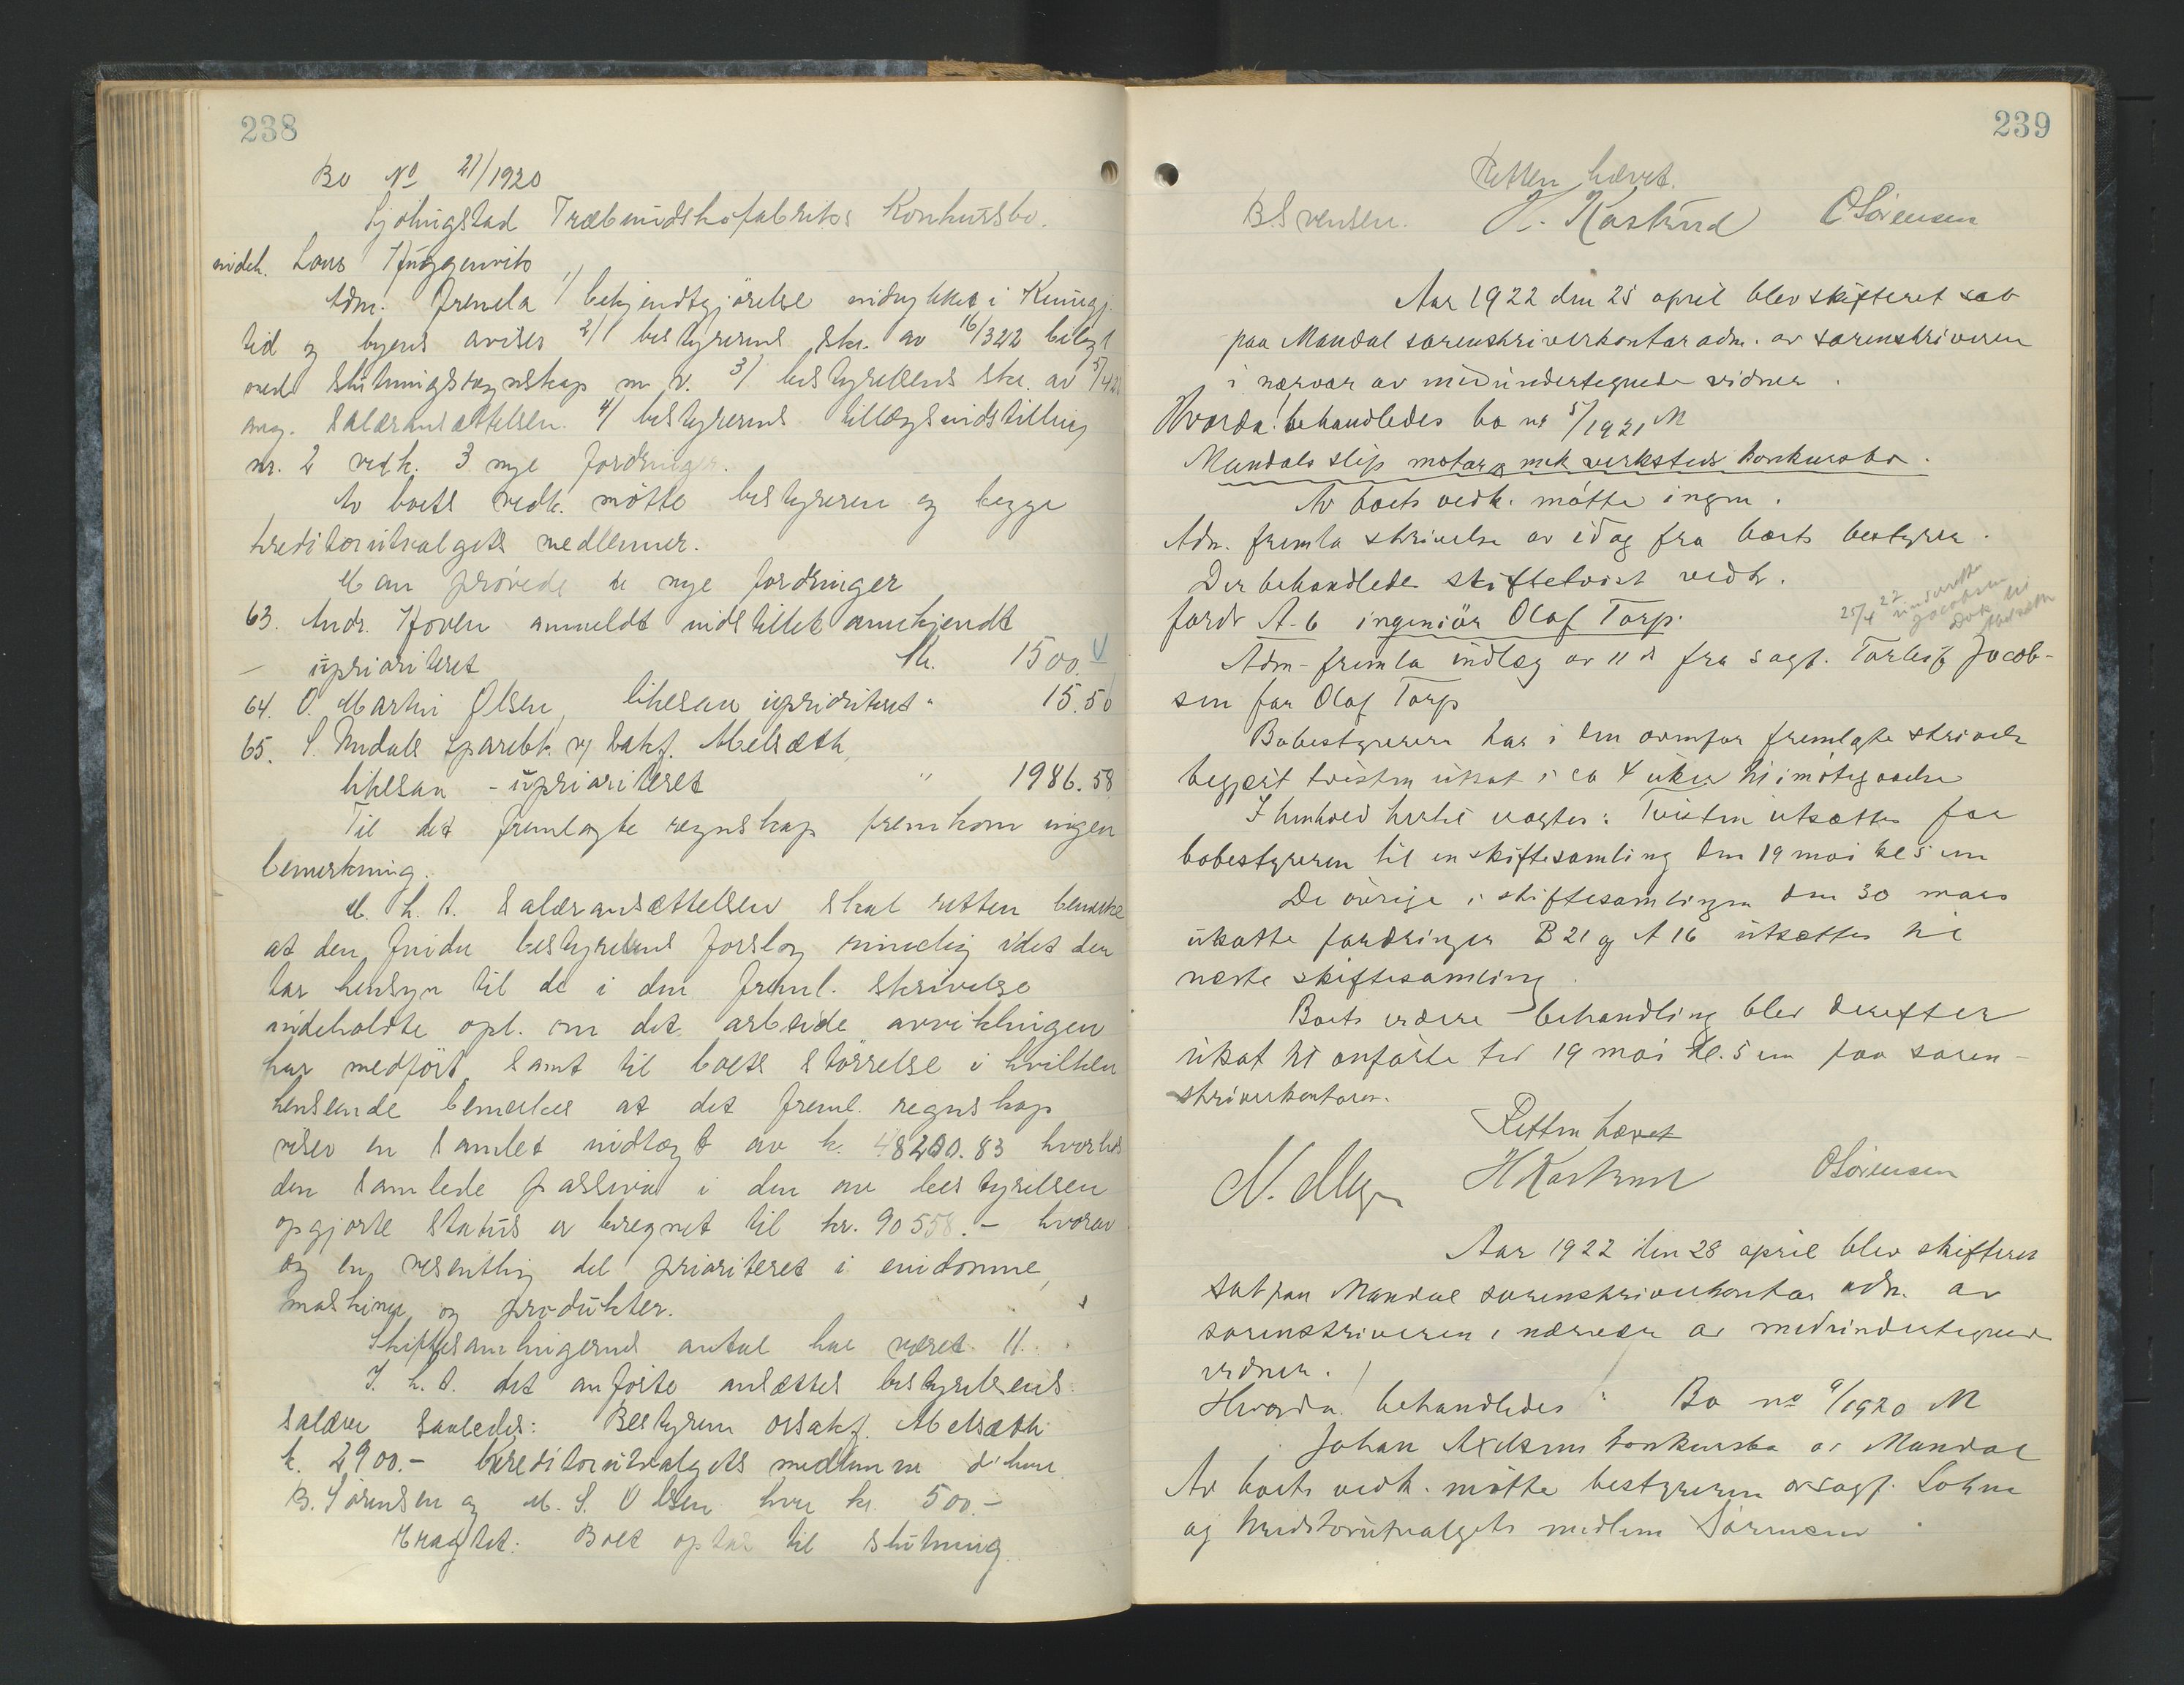 238
Bo No 21/1920
Træbundskofabriks Konkursbo.
indeh. Lars
Adm. fremla 1/ bekjendtgjørelse indrykket i Kungj.
tid og byens aviser 2/ bestyrerens skr. av 16/3 22 bilagt
med slutningsregnskap m. v. 3/ bestyrelsens skr. av 5/4 22
ang. salæransættelsen. 4/ bestyrerens tillægsindstilling
nr. 2 vedk. 3 nye fordringer.
Av boets vedk. møtte bestyreren og begge
kreditorutvalgets medlemmer.
Man prøvede de nye fordringer
63. Andr. Hoven anmeldt indstillet anerkjendt
uprioriteret kr. 1500.-
64. O. Martin Olsen, likesaa uprioriteret " 15.50
65. S. Undals Sparebk. v/ sakf. Abelsæth,
likesaa - uprioriteret " 1986.58
Til det fremlagte regnskap fremkom ingen
bemerkning.
M. h. t. salæransættelsen skal retten bemerke
at den finder bestyrelsens forslag rimelig idet den
tar hensyn til de i den freml. skrivelse
indeholdte opl. om det arbeide avviklingen
har medført, samt til boets størrelse i hvilken
henseende bemerkes at det freml. regnskap
viser en samlet indtægt av kr. 48200.83 hvorhos
den samlede passiva i den av bestyrelsen
opgjorte status er beregnet til kr. 90558.- hvorav
og en væsentlig del prioriteret i eiendomme,
maskiner og produkter.
Skiftesamlingernes antal har været 11.
I. h. t. det anførte ansættes bestyrelsens
salærer saaledes: Bestyreren orsakf. Abelsæth
kr. 2900.- kreditorutvalgets medlemmer d'herr
B. Sörensen og M. S. Olsen hver kr. 500.-
Eragtet: Boet optas til slutning
239
Retten hævet.
B. Svensen. H. Kastrud O Sörensen
Aar 1922 den 25 april blev skifteret sat
paa Mandal sorenskriverkontor adm. av sorenskriveren
i nærvær av medundertegnede vidner.
Hvorda! behandledes bo nr 5/1921 M
Mandals slip motor & mek verksteds konkursbo.
Av boets vedk. møtte ingen.
Adm. fremla skrivelse av idag fra boets bestyrer.
Der behandledes skiftetvist vedk.
25/4 22 underrettet Jacobsen
fordr A-6 ingeniör Olaf Torp.
Adm. fremla indlæg av 11 ds fra sagf. Torleif Jacob-
sen for Olaf Torp
Bobestyreren har i den ovenfor fremlagte skrivelse
begjært tvisten utsat i ca 4 uker til imøtegaaelse
I henhold hertil eragtes: Tvisten utsættes for
bobestyreren til en skiftesamling den 19 mai kl 5 em
De øvrige i skiftesamlingen den 30 mars
utsatte fordringer B 21 og A 16 utsættes til
næste skiftesamling.
Boets videre behandling blev derefter
utsat til anførte tid 19 mai kl. 5 em paa soren-
skriverkontoret.
Retten hævet
H Kastrud O Sörensen
Aar 1922 den 28 april blev skifteret
sat paa Mandal sorenskriverkontor adm. av
sorenskriveren i nærvær av medundertegnede
vidner.
Hvorda behandledes: Bo no 9/1920 M
Johan Axelsens konkursbo av Mandal
Av boets vedk. møtte bestyreren orsagf. Lohne
og kreditorutvalgets medlem Sörensen.